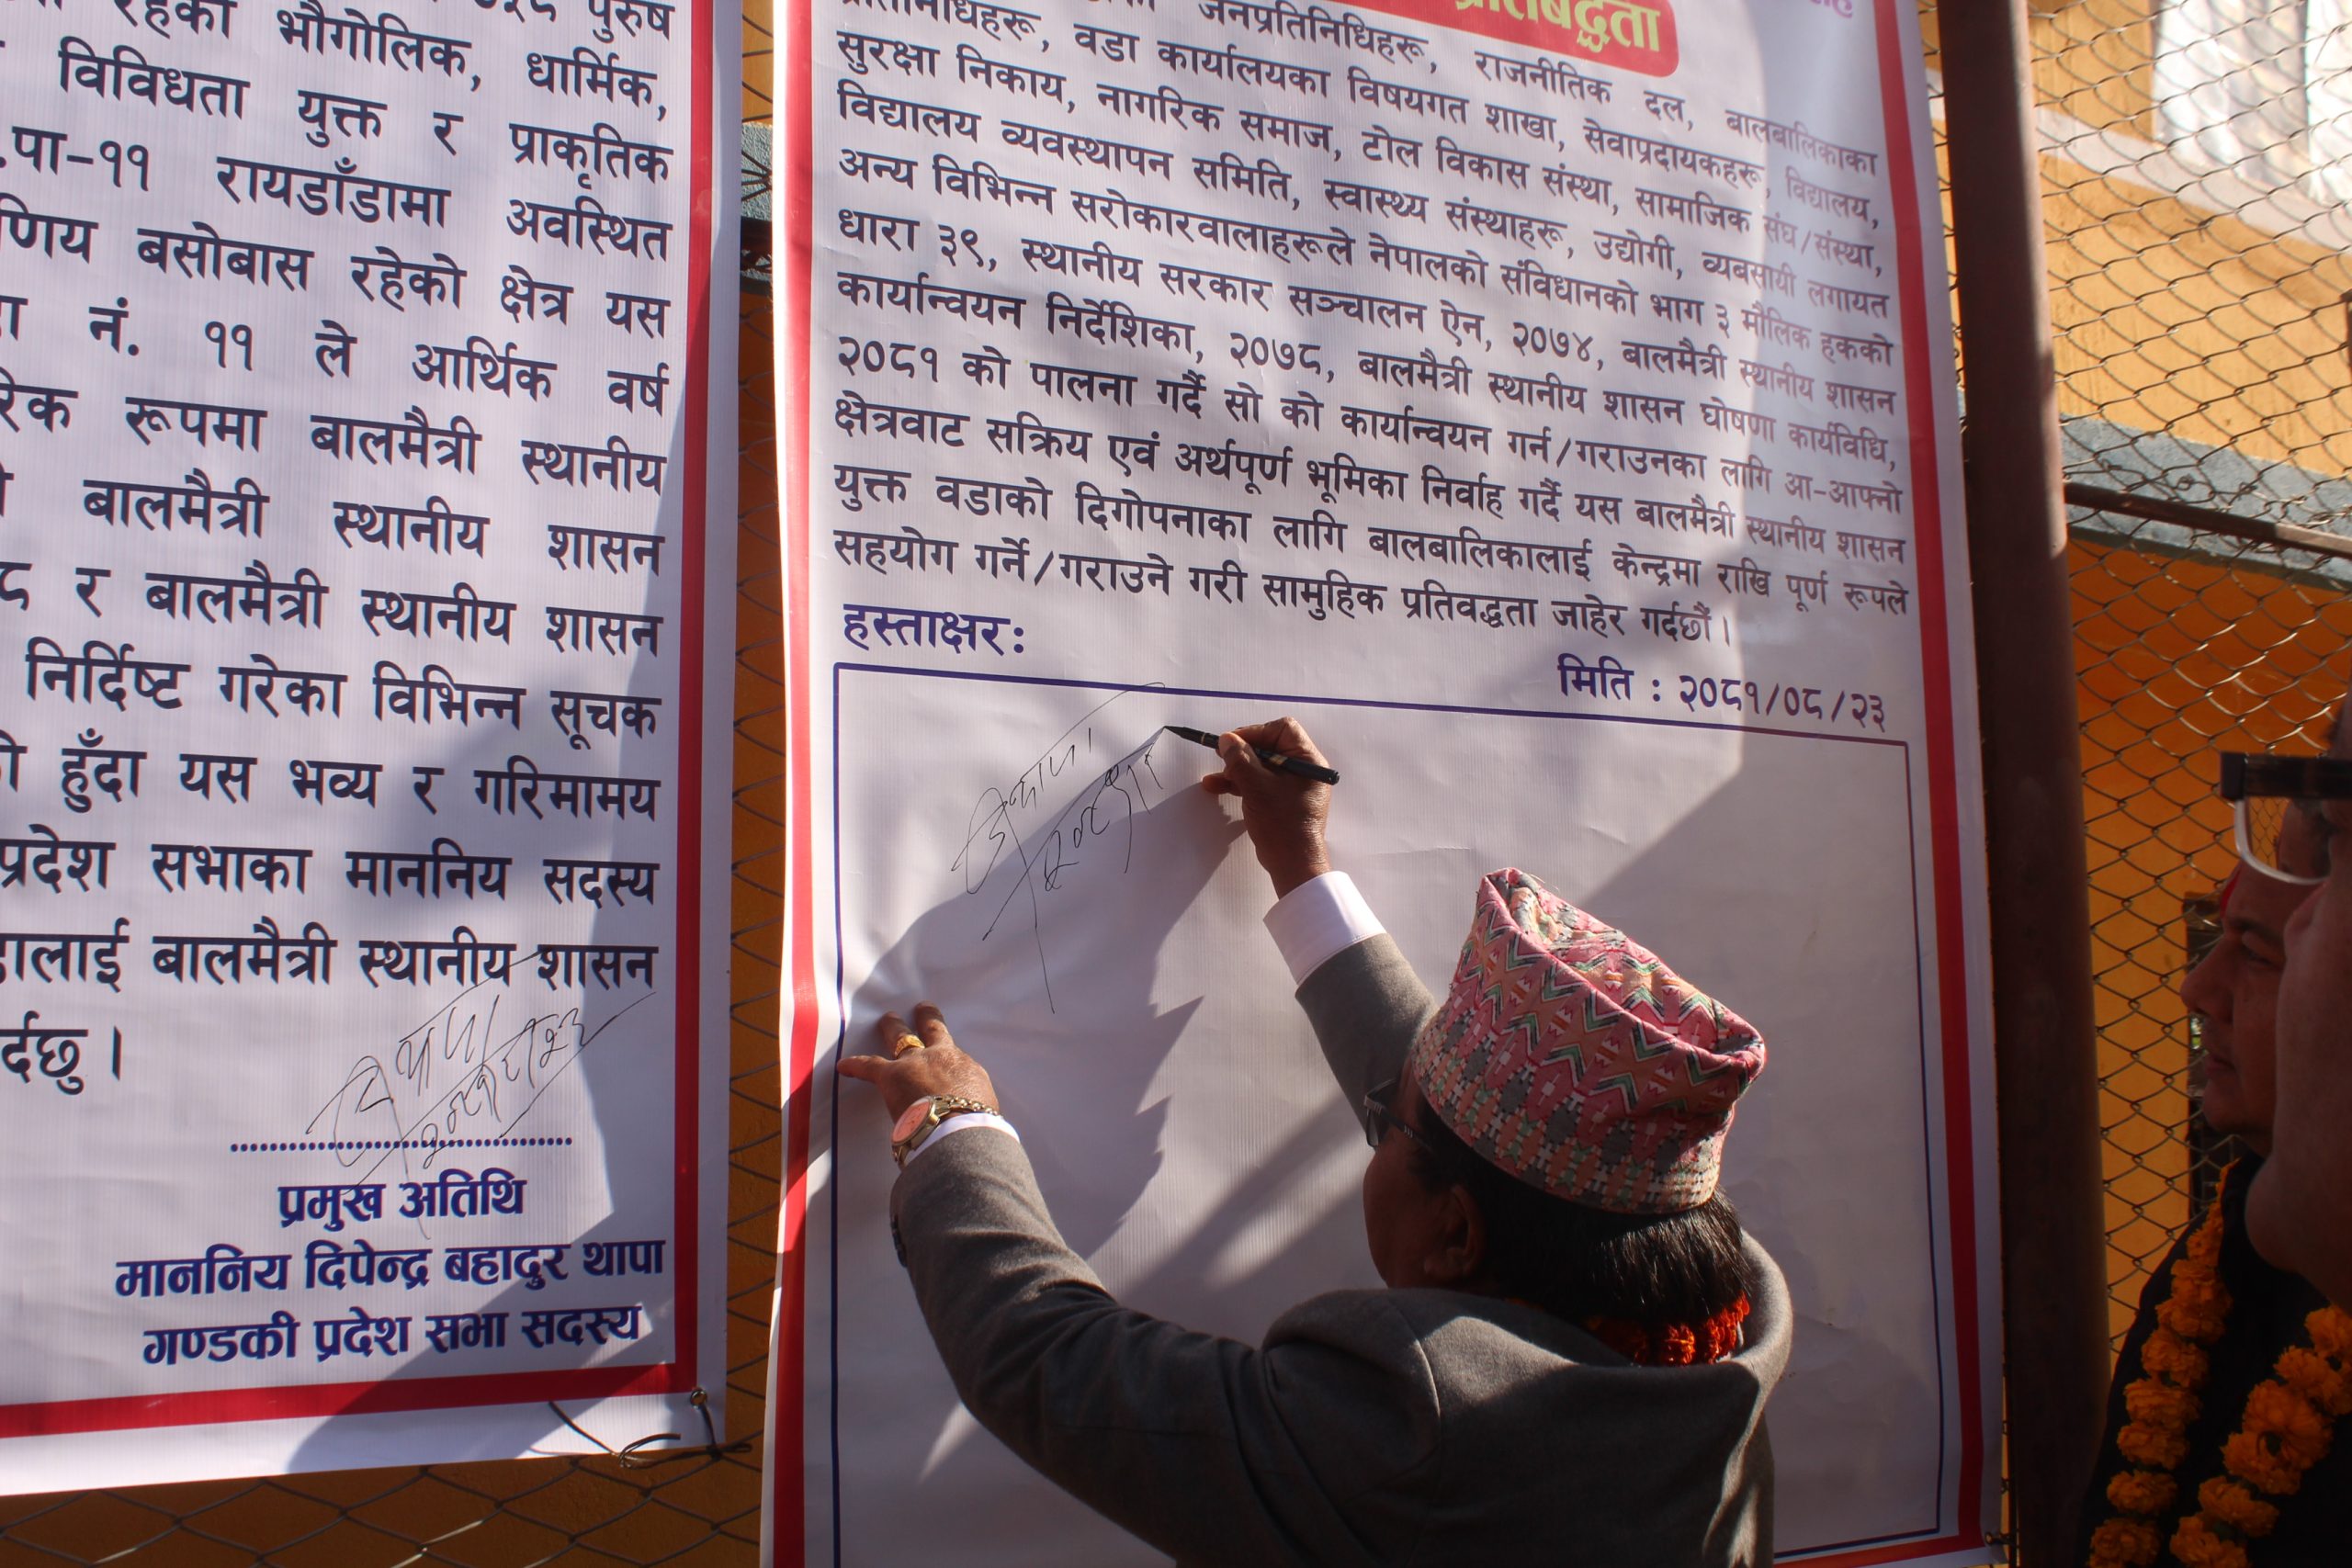 रहेको भौगोलिक, धार्मिक,
विविधता युक्त र प्राकृतिक
.पा-११ रायडाँडामा अवस्थित
णिय बसोबास रहेको क्षेत्र यस
नं. ११ ले आर्थिक वर्ष
रिक रूपमा बालमैत्री स्थानीय
बालमैत्री स्थानीय शासन
८ र बालमैत्री स्थानीय शासन
निर्दिष्ट गरेका विभिन्न सूचक
हुँदा यस भव्य र गरिमामय
प्रदेश सभाका माननिय सदस्य
लाई बालमैत्री स्थानीय शासन
र्दछु ।
प्रमुख अतिथि
माननिय दिपेन्द्र बहादुर थापा
गण्डकी प्रदेश सभा सदस्य
जनप्रतिनिधिहरू, राजनीतिक दल, बालबालिकाका
प्रतिनिधिहरू, वडा कार्यालयका विषयगत शाखा, सेवाप्रदायकहरू, विद्यालय,
सुरक्षा निकाय, नागरिक समाज, टोल विकास संस्था, सामाजिक संघ/संस्था,
विद्यालय व्यवस्थापन समिति, स्वास्थ्य संस्थाहरू, उद्योगी, व्यबसायी लगायत
अन्य विभिन्न सरोकारवालाहरूले नेपालको संविधानको भाग ३ मौलिक हकको
धारा ३९, स्थानीय सरकार सञ्चालन ऐन, २०७४, बालमैत्री स्थानीय शासन
कार्यान्वयन निर्देशिका, २०७८, बालमैत्री स्थानीय शासन घोषणा कार्यविधि,
२०८१ को पालना गर्दै सो को कार्यान्वयन गर्न/गराउनका लागि आ-आफ्नो
क्षेत्रवाट सक्रिय एवं अर्थपूर्ण भूमिका निर्वाह गर्दै यस बालमैत्री स्थानीय शासन
युक्त वडाको दिगोपनाका लागि बालबालिकालाई केन्द्रमा राखि पूर्ण रूपले
सहयोग गर्ने/गराउने गरी सामुहिक प्रतिवद्धता जाहेर गर्दछौं ।
हस्ताक्षर:
मिति : २०८१/०८/२३